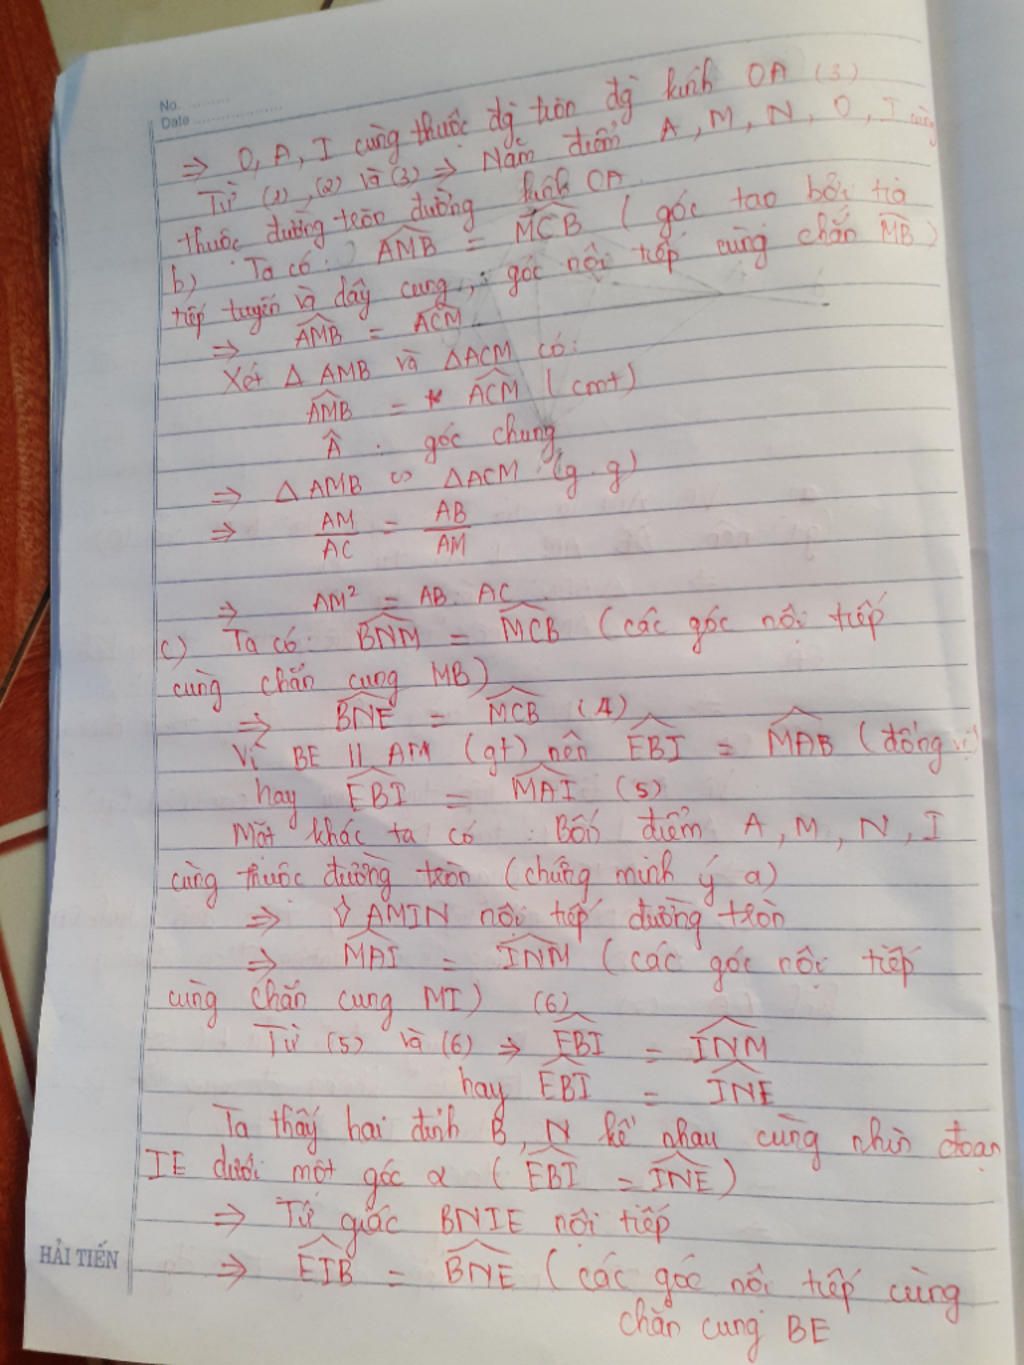 No. ..........
Date ....................
⇒ O, A, I cùng thuộc đg tròn đg kính OA (3)
Từ (1), (2) và (3) ⇒ Năm điểm A, M, N, O, I cùng
thuộc đường tròn đường kính OA
b) Ta có: \widehat{AMB} = \widehat{MCB} ( góc tạo bởi tia
tiếp tuyến và dây cung, góc nội tiếp cùng chắn \widehat{MB} )
⇒ \widehat{AMB} = \widehat{ACM}
Xét Δ AMB và ΔACM có:
\widehat{AMB} = \widehat{ACM} ( cmt)
\widehat{A} : góc chung
⇒ Δ AMB ∽ ΔACM (g.g)
⇒ \frac{AM}{AC} = \frac{AB}{AM}
⇒ AM² = AB. AC.
c) Ta có: \widehat{BNM} = \widehat{MCB} (các góc nội tiếp
cùng chắn cung MB)
⇒ \widehat{BNE} = \widehat{MCB} (4)
Vì BE // AM (gt) nên \widehat{EBI} = \widehat{MAB} (đồng vị)
hay \widehat{EBI} = \widehat{MAI} (5)
Mặt khác ta có : Bốn điểm A, M, N, I
cùng thuộc đường tròn (chứng minh ý a)
⇒ ◊ AMIN nội tiếp đường tròn
⇒ \widehat{MAI} = \widehat{INM} (các góc nội tiếp
cùng chắn cung MI) (6)
Từ (5) và (6) ⇒ \widehat{EBI} = \widehat{INM}
hay \widehat{EBI} = \widehat{INE}
Ta thấy hai đỉnh B, N kề nhau cùng nhìn đoạn
IE dưới một góc α ( \widehat{EBI} = \widehat{INE} )
⇒ Tứ giác BNIE nội tiếp
⇒ \widehat{EIB} = \widehat{BNE} (các góc nội tiếp cùng
chắn cung BE
HẢI TIẾN